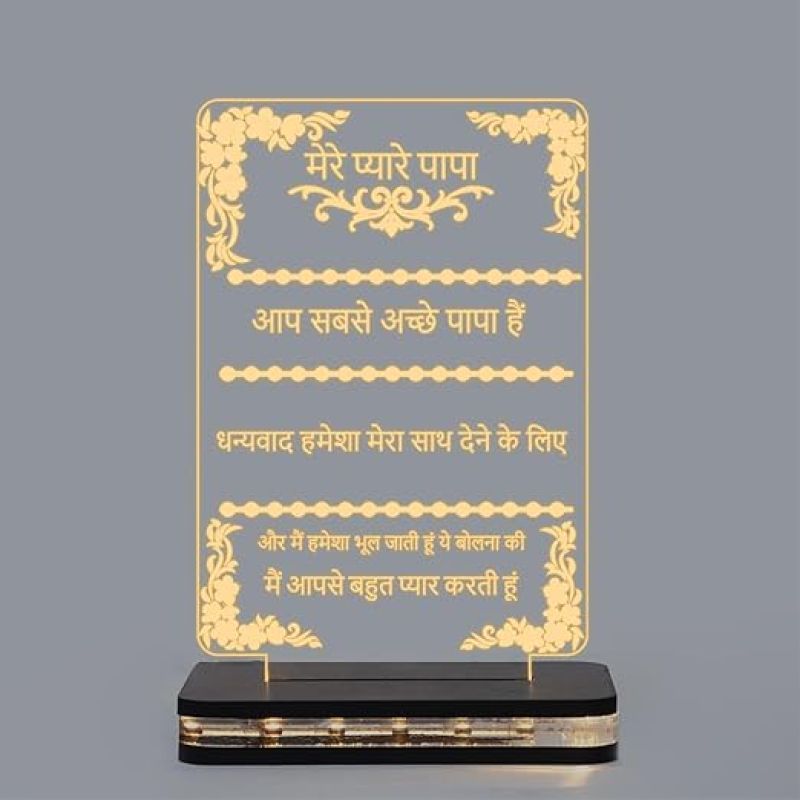 मेरे प्यारे पापा
आप सबसे अच्छे पापा हैं
धन्यवाद हमेशा मेरा साथ देने के लिए
और मैं हमेशा भूल जाती हूं ये बोलना की
मैं आपसे बहुत प्यार करती हूं